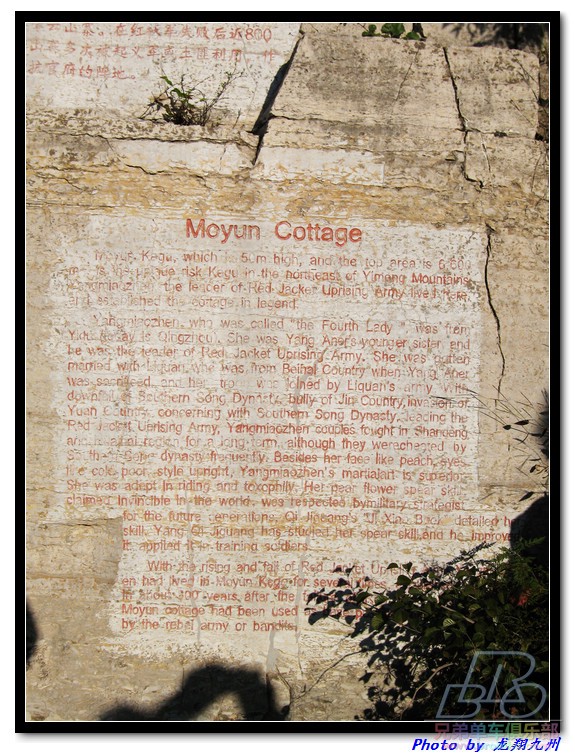 云山寨。在红袄军失败后近800
山寨多次被起义军或土匪利用，作
抗官府的阵地。
Moyun Cottage
Moyun Kegu, which is 50m high, and the top area is 6,600
risk Kegu in the northeast of Yimeng Mountains
the leader of Red Jacket Uprising Army lived here
and established the cottage in legend.
Yangmiaozhen, who was called "the Fourth Lady ", was from
is Qingzhou). She was Yang Aner's younger sister and
he was the leader of Red Jacket Uprising Army. She was gotten
married with Liquan who was from Beihai Country when Yang Aner
was sacrificed, and her was joined by Liquan's army. With
downfall of Southern Song Dynasty, bully of Jin Country, invasion of
Yuan Country, concerning with Southern Song Dynasty, leading the
Red Jacket Uprising Army, Yangmiaozhen couples fought in Shandong
and region for a long-term, although they
dynasty frequently. Besides her face like peach, eyes
like cold pool, style upright, Yangmiaozhen's martialart is superior.
She was adept in riding and toxophily. Her pear flower spear skill
claimed invincible in the world, was respected bymilitary strategist
for the future generations. Qi Jiguang's detailed
skill. Yang Qi Jiguang has studied her spear skill,and he
it applied it in training soldiers.
With the rising and fall of Red Jacket
en had lived in Moyun Kegu for several
In about 800 years, after the
Moyun cottage had been used
by the rebel army or bandits.
兄弟单车俱乐部
Photo by 龙翔九州